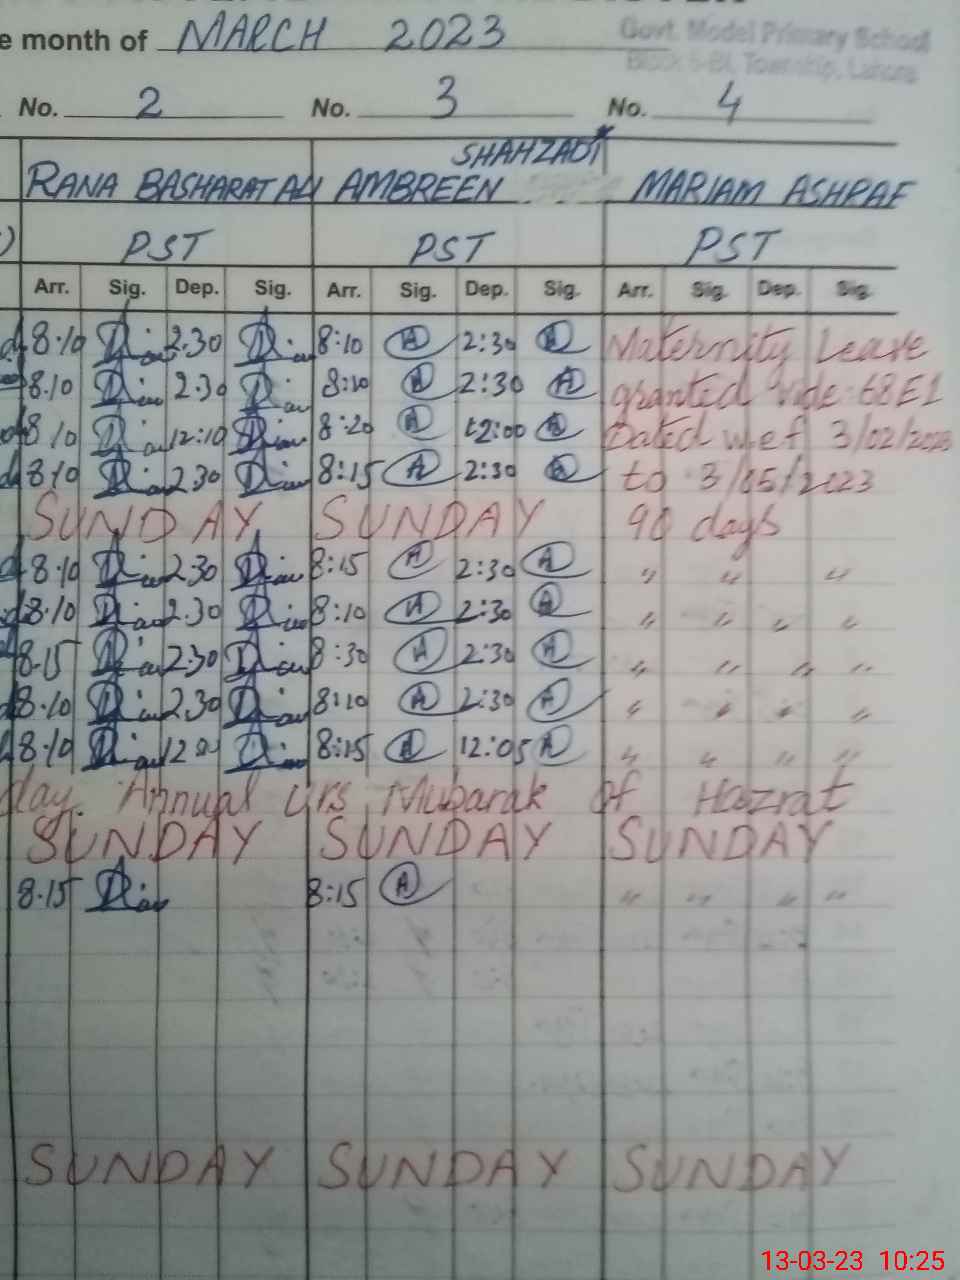 e month of MARCH 2023
Govt. Model Primary School
Township, Lahore
No. 2 No. 3 No. 4
SHAHZADI
RANA BASHARAT ALI AMBREEN MARIAM ASHRAF
PST PST PST
Arr. Sig. Dep. Sig. Arr. Sig. Dep. Sig. Arr. Sig. Dep. Sig.
8:10 2.30 8:10 A 2:30 A Maternity Leave
8.10 2.30 8:10 A 2:30 A granted vide 68E1
8 10 12:10 8:20 A 12:00 A Dated w.e.f 3/02/2023
8:10 2.30 8:15 A 2:30 A to 3/05/2023
SUNDAY SUNDAY 90 days
8:10 2.30 8:15 A 2:30 A " " "
8.10 2.30 8:10 A 2:30 A " " " "
8.15 2.30 8:30 A 2:30 A " " " "
8.10 2.30 8:10 A 2:30 A " " " "
8.10 12 8:15 A 12:05 A " " " "
day. Annual Urs Mubarak of Hazrat
SUNDAY SUNDAY SUNDAY
8.15 8:15 A " " " "
SUNDAY SUNDAY SUNDAY
13-03-23 10:25